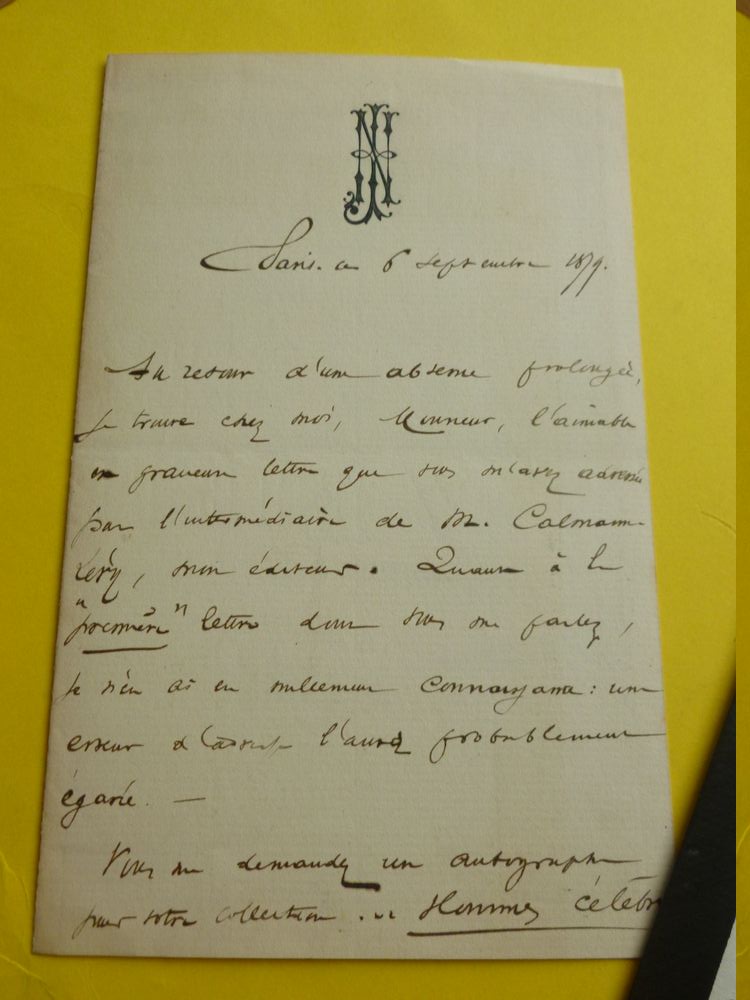 JN
Paris. ce 6 septembre 1879.
Au retour d'une absence prolongée,
je trouve chez moi, Monsieur, l'aimable
et gracieuse lettre que vous m'avez adressée
par l'intermédiaire de M. Calmann
Lévy, mon éditeur. Quant à la
"première" lettre dont vous me parlez,
je n'en ai eu nullement connaissance : une
erreur d'adresse l'aura probablement
égarée. —
Vous me demandez un autographe
pour votre collection ... Hommes célèbr